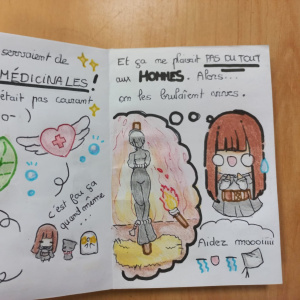 servaient de
MÉDICINALES !
était pas courant
o- )
c'est pas ça
quand même
...
Et ça me plaisait PAS DU TOUT
aux HOMMES. Alors...
on les brûlaient vives.
Aidez moooiiiii